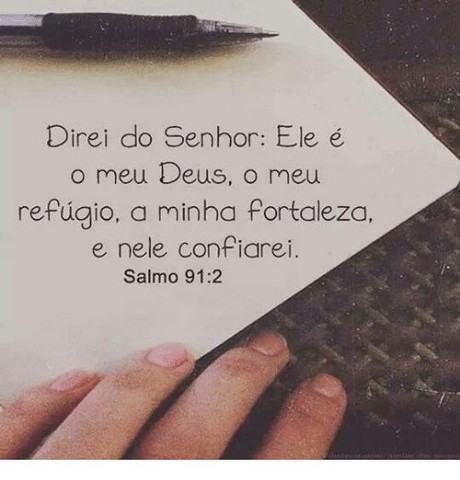 Direi do Senhor: Ele é
o meu Deus, o meu
refúgio, a minha fortaleza,
e nele confiarei.
Salmo 91:2